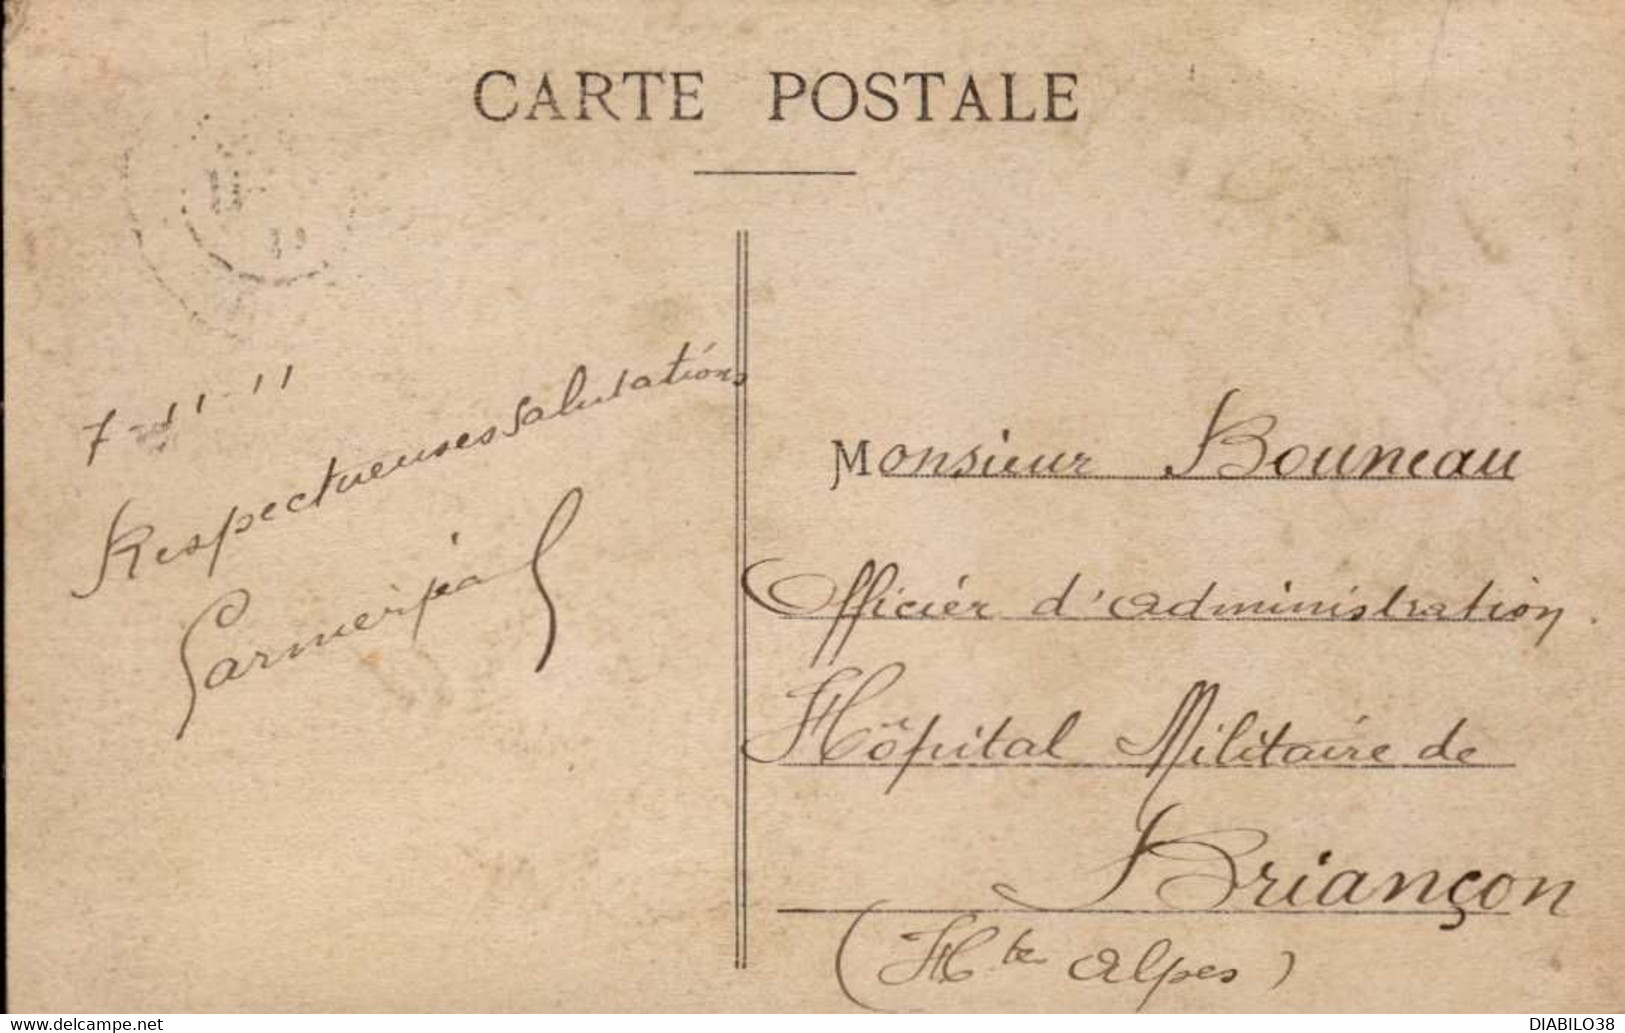 CARTE POSTALE
7-11-11
Respectueuses Salutations
Monsieur Bouneau
Officier d'administration
Hôpital Militaire de
Briançon
(Htes Alpes)
delcampe.net
DIABILO38